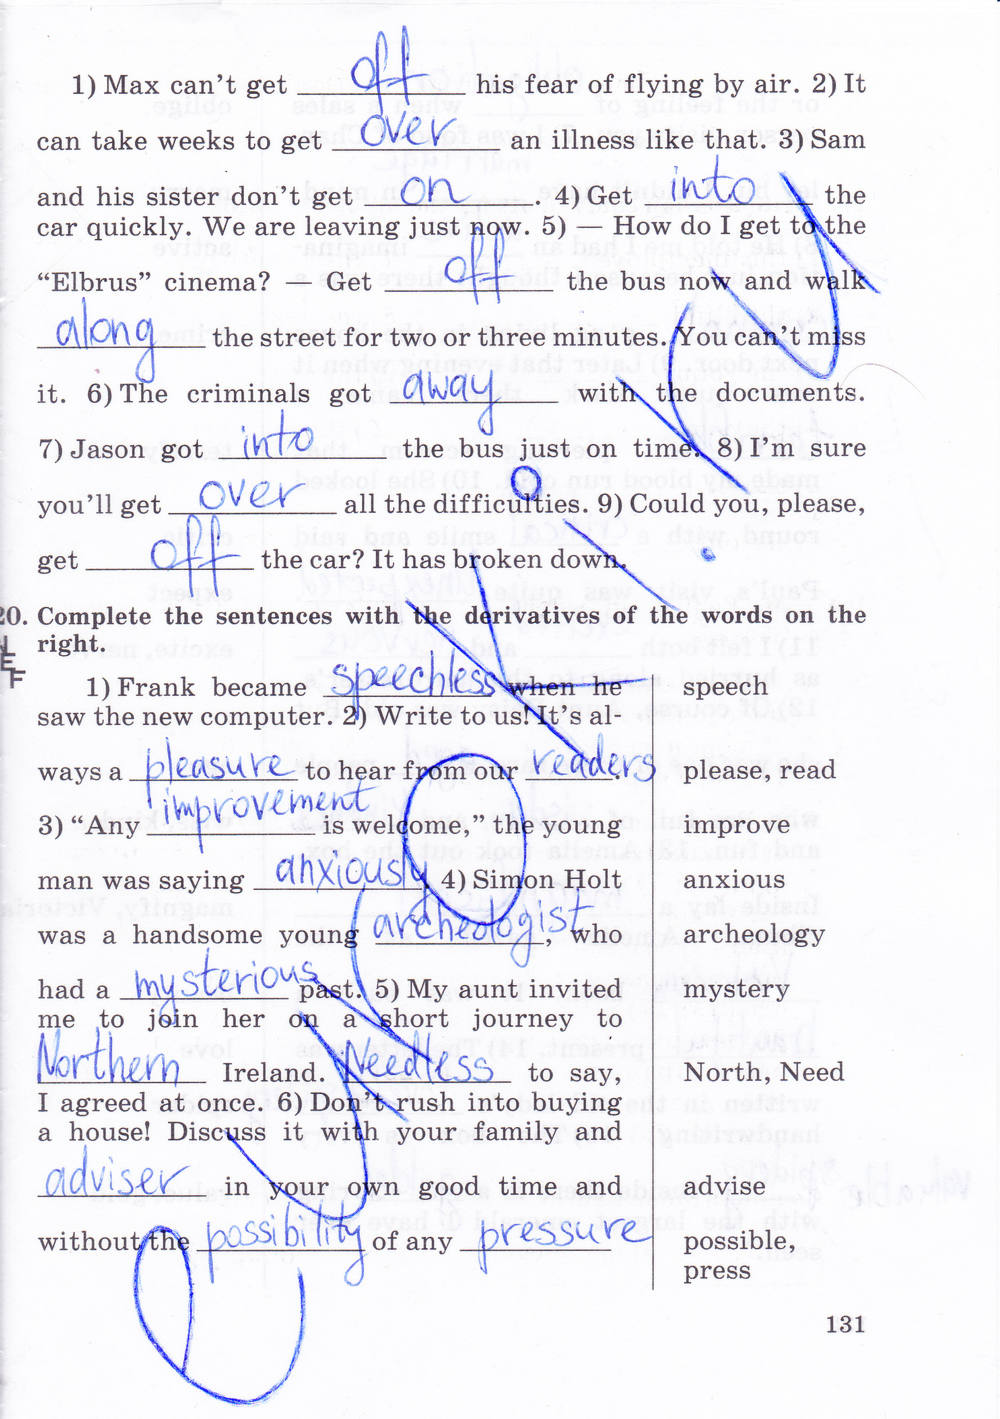 1) Max can't get off his fear of flying by air. 2) It
can take weeks to get over an illness like that. 3) Sam
and his sister don't get on. 4) Get into the
car quickly. We are leaving just now. 5) — How do I get to the
"Elbrus" cinema? — Get off the bus now and walk
along the street for two or three minutes. You can't miss
it. 6) The criminals got away with the documents.
7) Jason got into the bus just on time. 8) I'm sure
you'll get over all the difficulties. 9) Could you, please,
get off the car? It has broken down.
20. Complete the sentences with the derivatives of the words on the
right.
1) Frank became speechless when he speech
saw the new computer. 2) Write to us! It's al-
ways a pleasure to hear from our readers. please, read
3) "Any improvement is welcome," the young improve
man was saying anxiously 4) Simon Holt anxious
was a handsome young archeologist, who archeology
had a mysterious past. 5) My aunt invited mystery
me to join her on a short journey to
Northern Ireland. Needless to say, North, Need
I agreed at once. 6) Don't rush into buying
a house! Discuss it with your family and
adviser in your own good time and advise
without the possibility of any pressure possible,
press
131